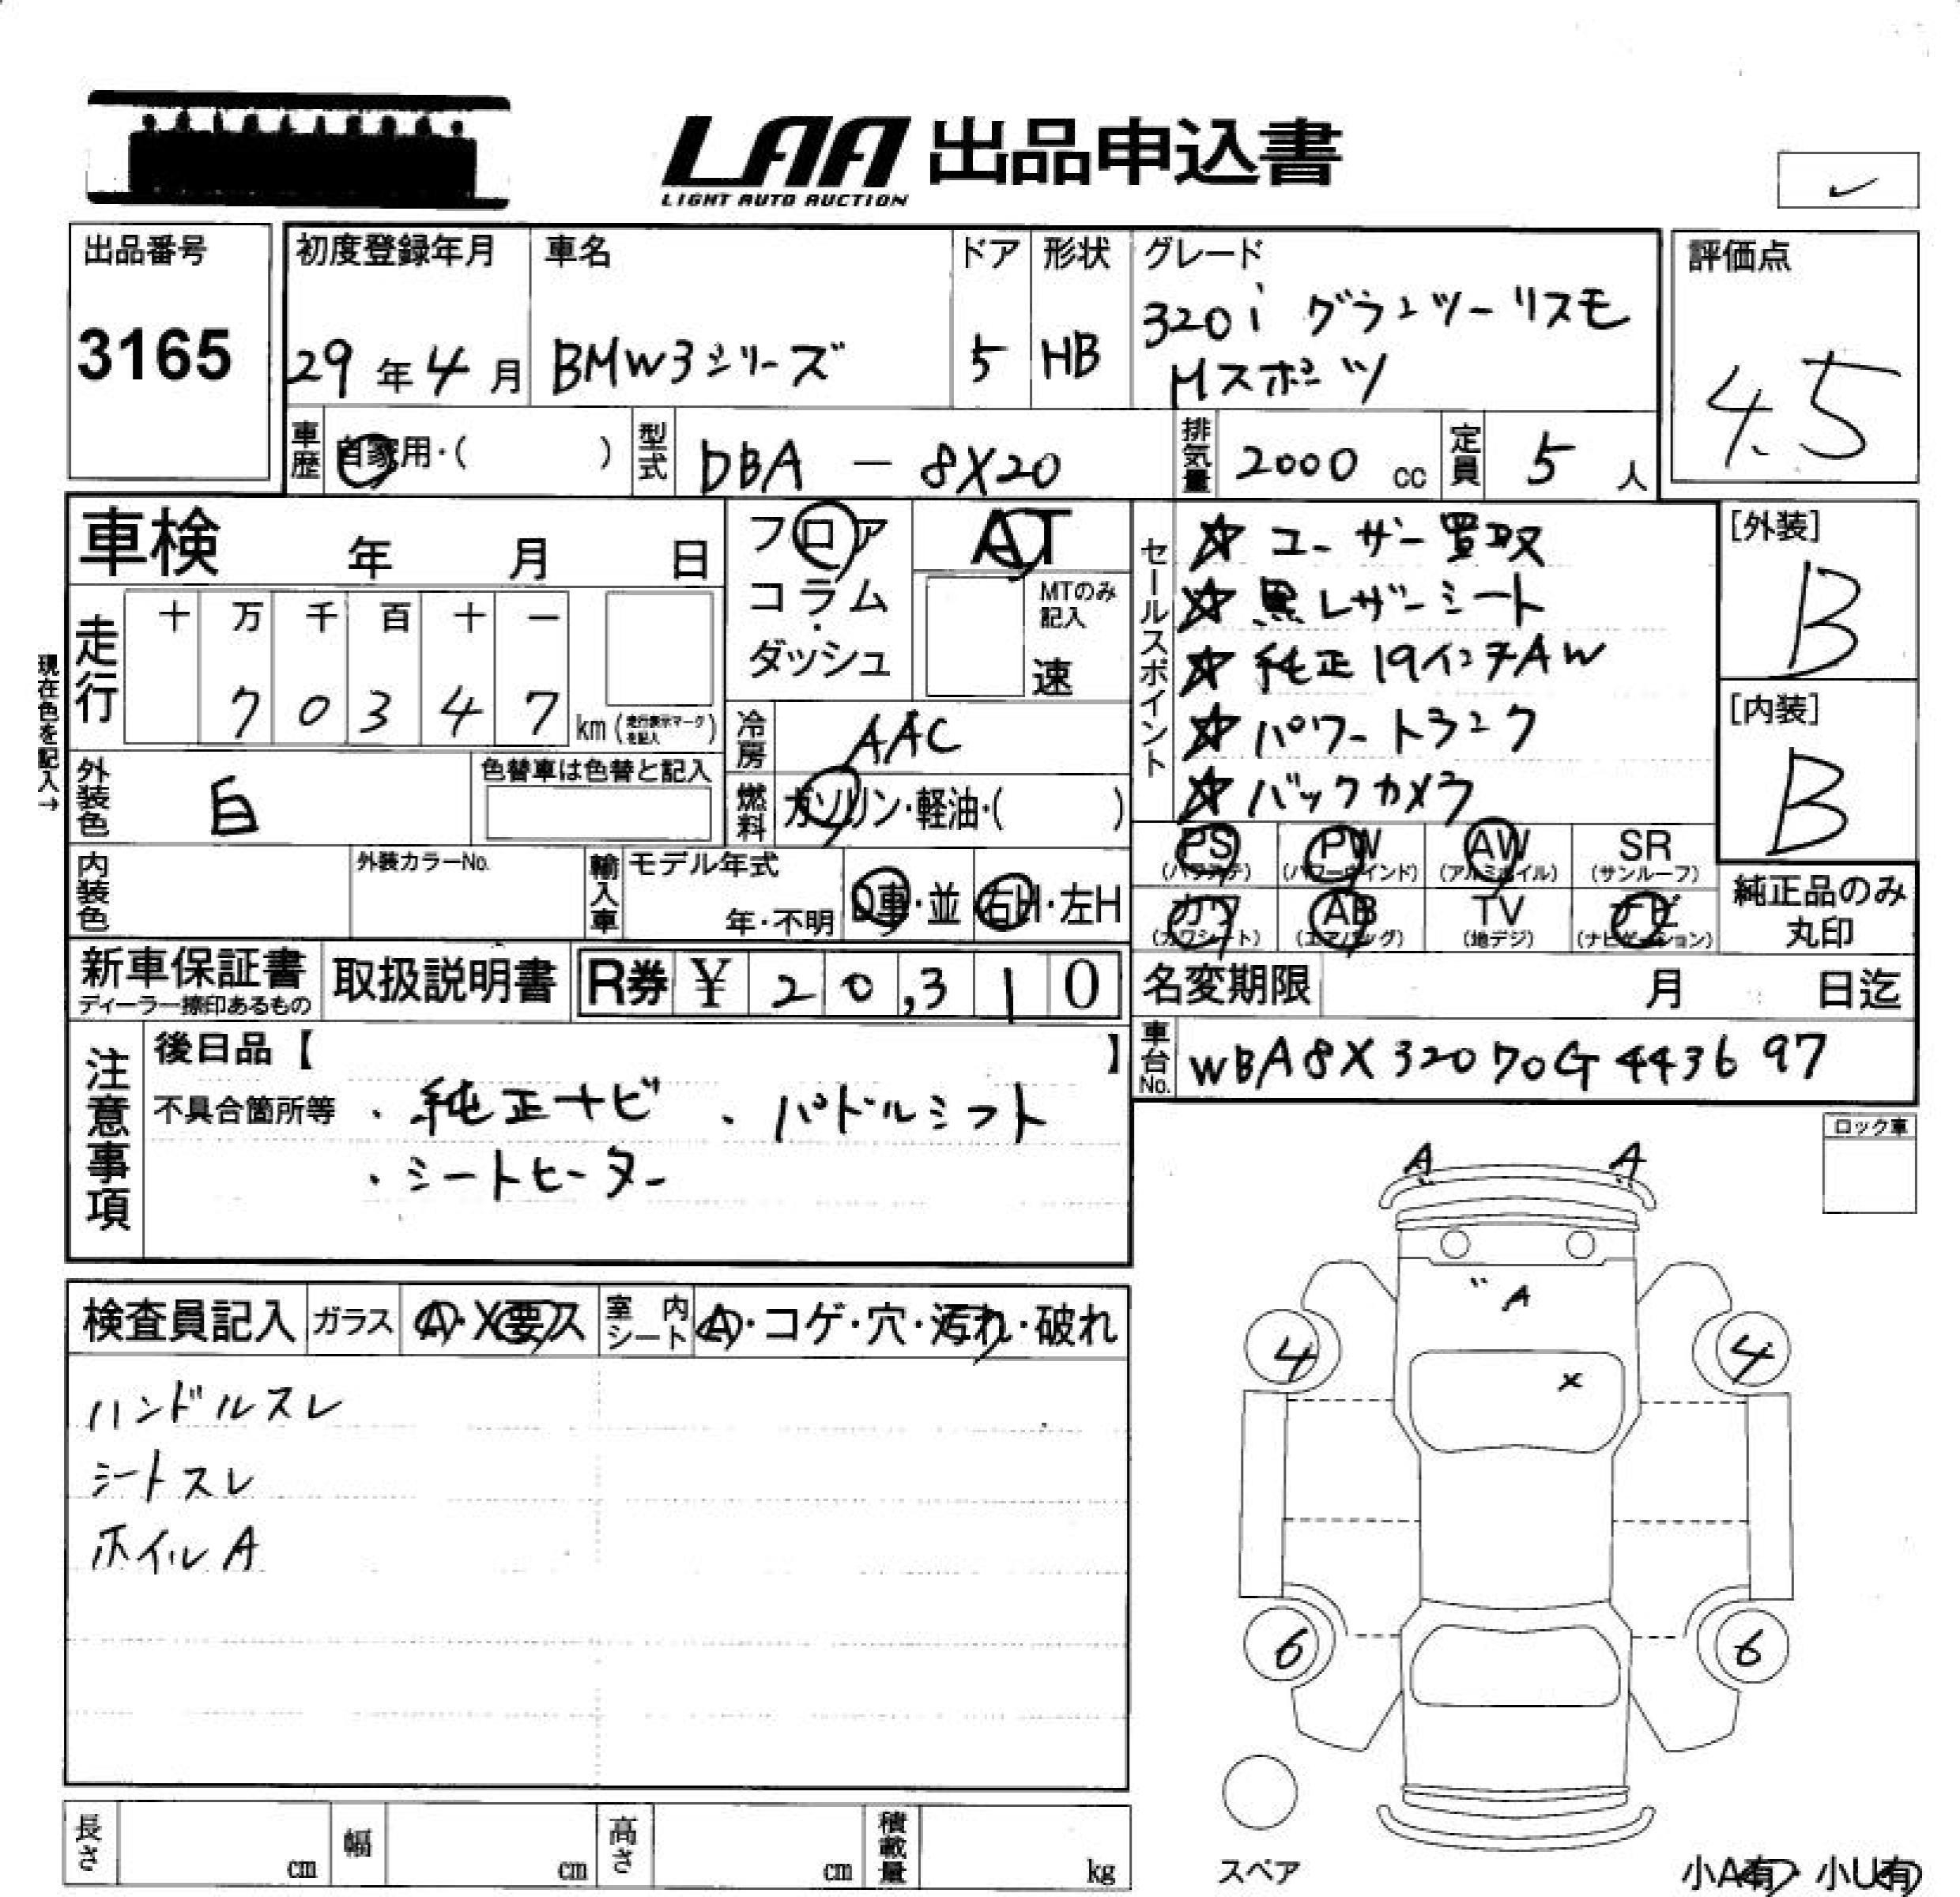 LAA 出品申込書
LIGHT AUTO AUCTION
出品番号
3165
初度登録年月
29年4月
車名
BMW3シリーズ
ドア
5
形状
HB
グレード
320i グランツーリスモ
Mスポーツ
評価点
4.5
車歴 自家用・( )
型式 DBA － 8X20
排気量 2000 cc
定員 5 人
車検 年 月 日
フロア
コラム
・
ダッシュ
AT
MTのみ
記入
速
セールスポイント
☆ ユーザー買取
☆ 黒レザーシート
☆ 純正19インチAW
☆ パワートランク
☆ バックカメラ
[外装]
B
[内装]
B
現在色を記入→
走行
十 万 千 百 十 一
7 0 3 4 7
km (走行表示マークを記入)
冷房 AAC
外装色 白
色替車は色替と記入
燃料 ガソリン・軽油・( )
PS (パワステ)
PW (パワーウインド)
AW (アルミホイル)
SR (サンルーフ)
カワ (カワシート)
AB (エアバッグ)
TV (地デジ)
ナビ (ナビゲーション)
純正品のみ
丸印
内装色
外装カラーNo.
輸入車
モデル年式
年・不明
D車・並
右H・左H
新車保証書
ディーラー捺印あるもの
取扱説明書
R券 ¥ 20,310
名変期限 月 日迄
車台No. WBA8X32070G443697
注意事項
後日品【 】
不具合箇所等 ・純正ナビ ・パドルシフト
・シートヒーター
ロック車
検査員記入
ガラス A・X要ス
室内シート A・コゲ・穴・汚れ・破れ
ハンドルスレ
シートスレ
ホイルA
A A
A
4 4
x
6 6
スペア
小A有・小U有
長さ cm
幅 cm
高さ cm
積載量 kg